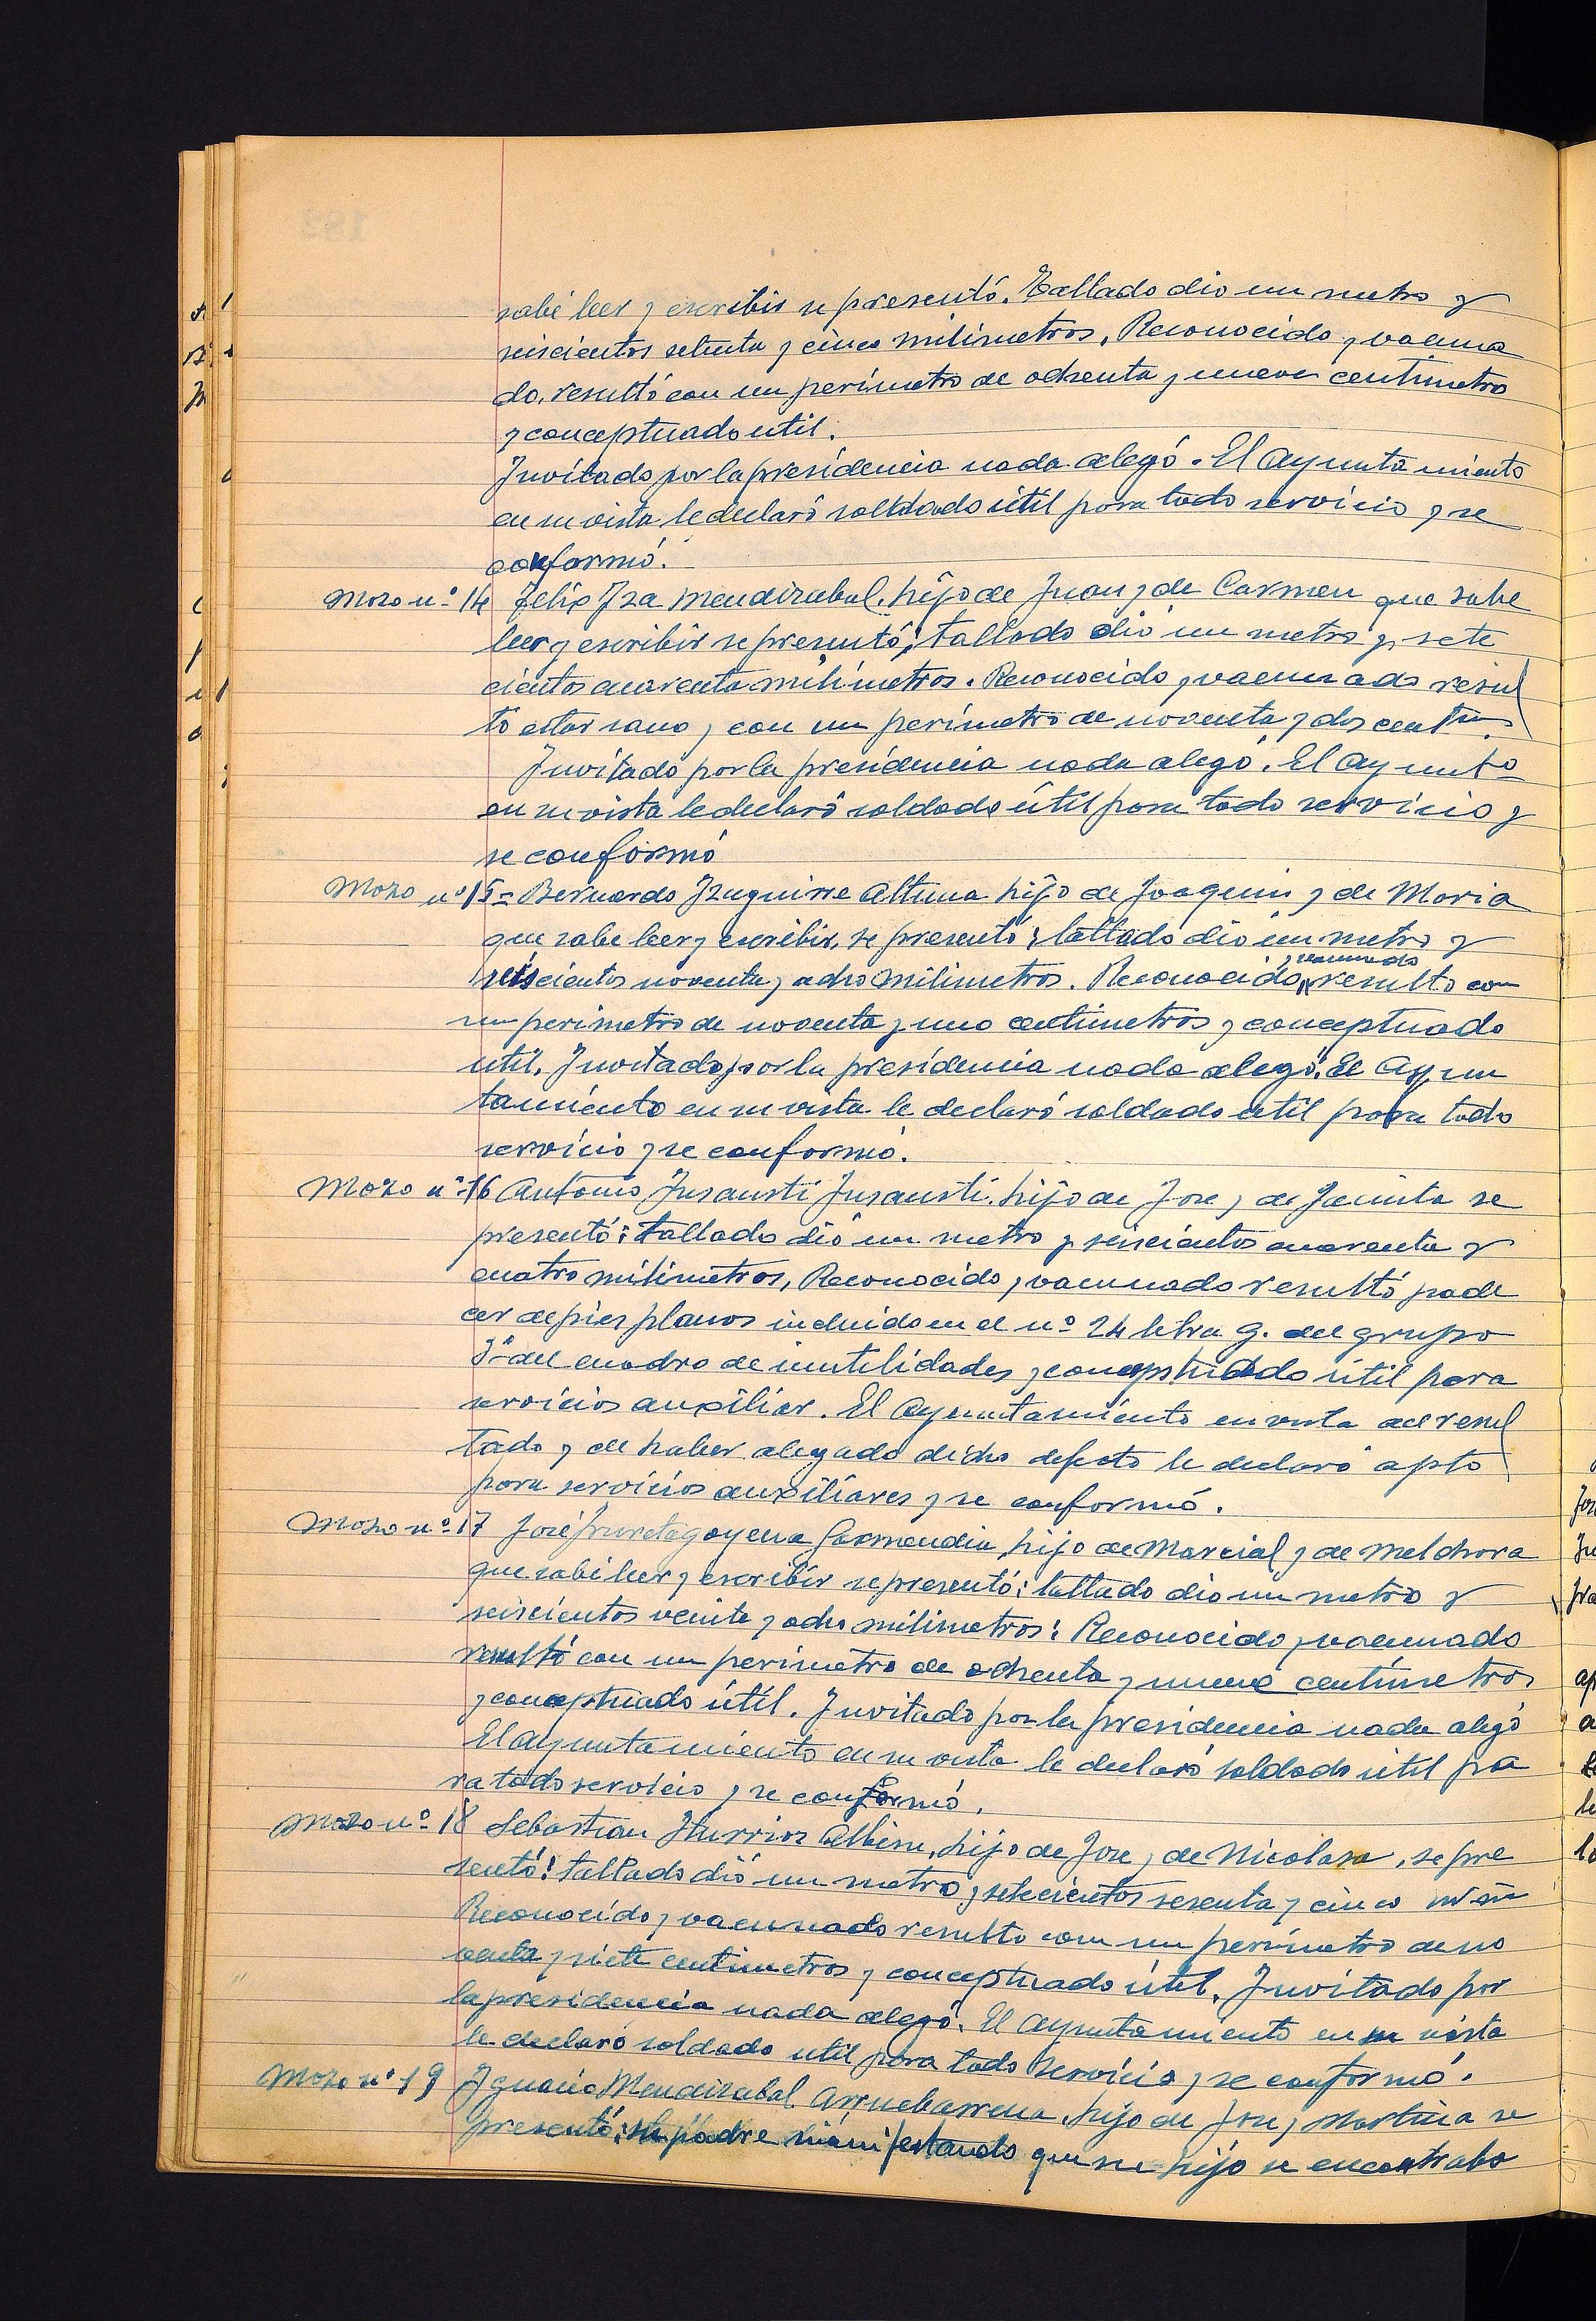 sabe leer y escribir se presentó. Tallado dio un metro y
seiscientos setenta y cinco milimetros, Reconocido y vacuna
do, resultó con un perímetro de ochenta y nueve centímetro
y conceptuado util.
Invitado por la presidencia nada alegó. El Ayuntamiento
en su vista le declaró soldado útil para todo servicio y se
conformó.
Mozo nº 14 Felix Iza Mendizabal, hijo de Juan y de Carmen que sabe
leer y escribir se presentó; tallado dio un metro y sete
cientos cuarenta milímetros. Reconocido y vacunado resul
tó estar sano y con un perímetro de noventa y dos centms.
Invitado por la presidencia nada alegó. El Ayuntº
en su vista le declaró soldado útil para todo servicio y
se conformó
Mozo nº 15- Bernardo Izaguirre Altuna hijo de Joaquin y de Maria
que sabe leer y escribir, se presentó; tallado dio un metro y
seiscientos noventa y ocho milimetros. Reconocido y vacunado resulto con
un perimetro de noventa y uno centimetros y conceptuado
util. Invitado por la presidencia nada alegó. El Ayun
tamiento en su vista le declaró soldado util para todo
servicio y se conformó.
Mozo nº 16 Antonio Insausti Insausti. hijo de Jose y de Jacinta se
presentó; tallado dió un metro y seiscientos cuarenta y
cuatro milimetros, Reconocido y vacunado resultó pade
cer de pies planos incluido en el nº 24 letra g. del grupo
3º del cuadro de inutilidades y conceptuado útil para
servicios auxiliar. El Ayuntamiento en vista del resul
tado y de haber alegado dicho defecto le declaró apto
para servicios auxiliares y se conformó.
Mozo nº 17 José Iruretagoyena Garmendia, hijo de Marcial y de Melchora
que sabe leer y escribir se presentó; tallado dio un metro y
seiscientos veinte y ocho milimetros; Reconocido y vacunado
resultó con un perimetro de ochenta y nueve centímetros
y conceptuado útil. Invitado por la presidencia nada alegó
El Ayuntamiento en su vista le declaró soldado útil pa
ra todo servicio y se conformó.
Mozo nº 18 Sebastian Iturrioz Albisu, hijo de Jose y de Nicolasa, se pre
sentó; tallado dió un metro y setecientos sesenta y cinco
Reconocido y vacunado resulto con un perímetro de no
venta y siete centimetros y conceptuado útil, Invitado por
la presidencia nada alegó. El Ayuntamiento en su vista
le declaró soldado util para todo servicio y se conformó.
Mozo nº 19 Ignacio Mendizabal Arruebarrena, hijo de Jose y Martina se
presentó; su padre manifestando que su hijo se encontraba